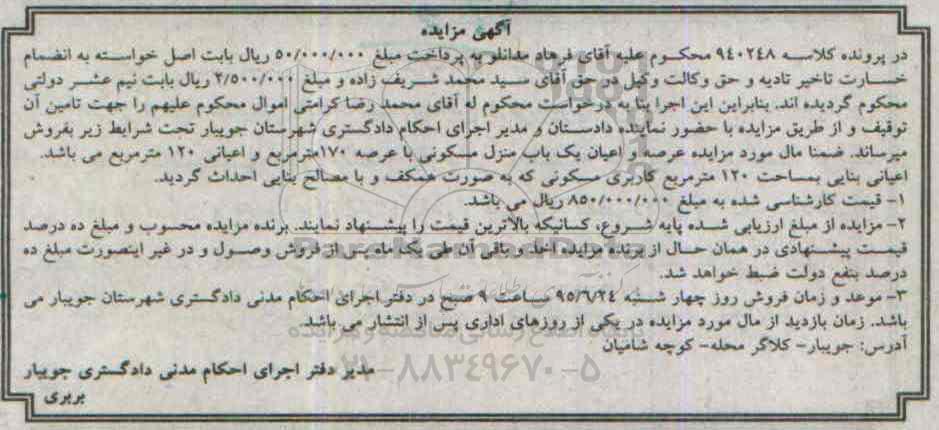 آگهی مزایده
در پرونده کلاسه ۹۴۰۲۴۸ محکوم علیه آقای فرهاد مدانلو به پرداخت مبلغ ۵۰/۰۰۰/۰۰۰ ریال بابت اصل خواسته به انضمام
خسارت تاخیر تادیه و حق وکالت وکیل در حق آقای سید محمد شریف زاده و مبلغ ۲/۵۰۰/۰۰۰ ریال بابت نیم عشر دولتی
محکوم گردیده اند. بنابراین این اجرا بنا به درخواست محکوم له آقای محمد رضا کرامتی اموال محکوم علیهم را جهت تامین آن
توقیف و از طریق مزایده با حضور نماینده دادستان و مدیر اجرای احکام دادگستری شهرستان جویبار تحت شرایط زیر بفروش
میرساند. ضمنا مال مورد مزایده عرصه و اعیان یک باب منزل مسکونی با عرصه ۱۷۰مترمربع و اعیانی ۱۲۰ مترمربع می باشد.
اعیانی بنایی بمساحت ۱۲۰ مترمربع کاربری مسکونی که به صورت همکف و با مصالح بنایی احداث گردید.
۱- قیمت کارشناسی شده به مبلغ ۸۵۰/۰۰۰/۰۰۰ ریال می باشد.
۲- مزایده از مبلغ ارزیابی شده پایه شروع، کسانیکه بالاترین قیمت را پیشنهاد نمایند. برنده مزایده محسوب و مبلغ ده درصد
قیمت پیشنهادی در همان حال از برنده مزایده اخذ و باقی آن طی یک ماه پس از فروش وصول و در غیر اینصورت مبلغ ده
درصد بنفع دولت ضبط خواهد شد.
۳- موعد و زمان فروش روز چهار شنبه ۹۵/۶/۲۴ ساعت ۹ صبح در دفتر اجرای احکام مدنی دادگستری شهرستان جویبار می
باشد. زمان بازدید از مال مورد مزایده در یکی از روزهای اداری پس از انتشار می باشد.
آدرس: جویبار- کلاگر محله- کوچه شامیان
مدیر دفتر اجرای احکام مدنی دادگستری جویبار
بربری
۰۲۱-۸۸۳۴۹۶۷۰-۵